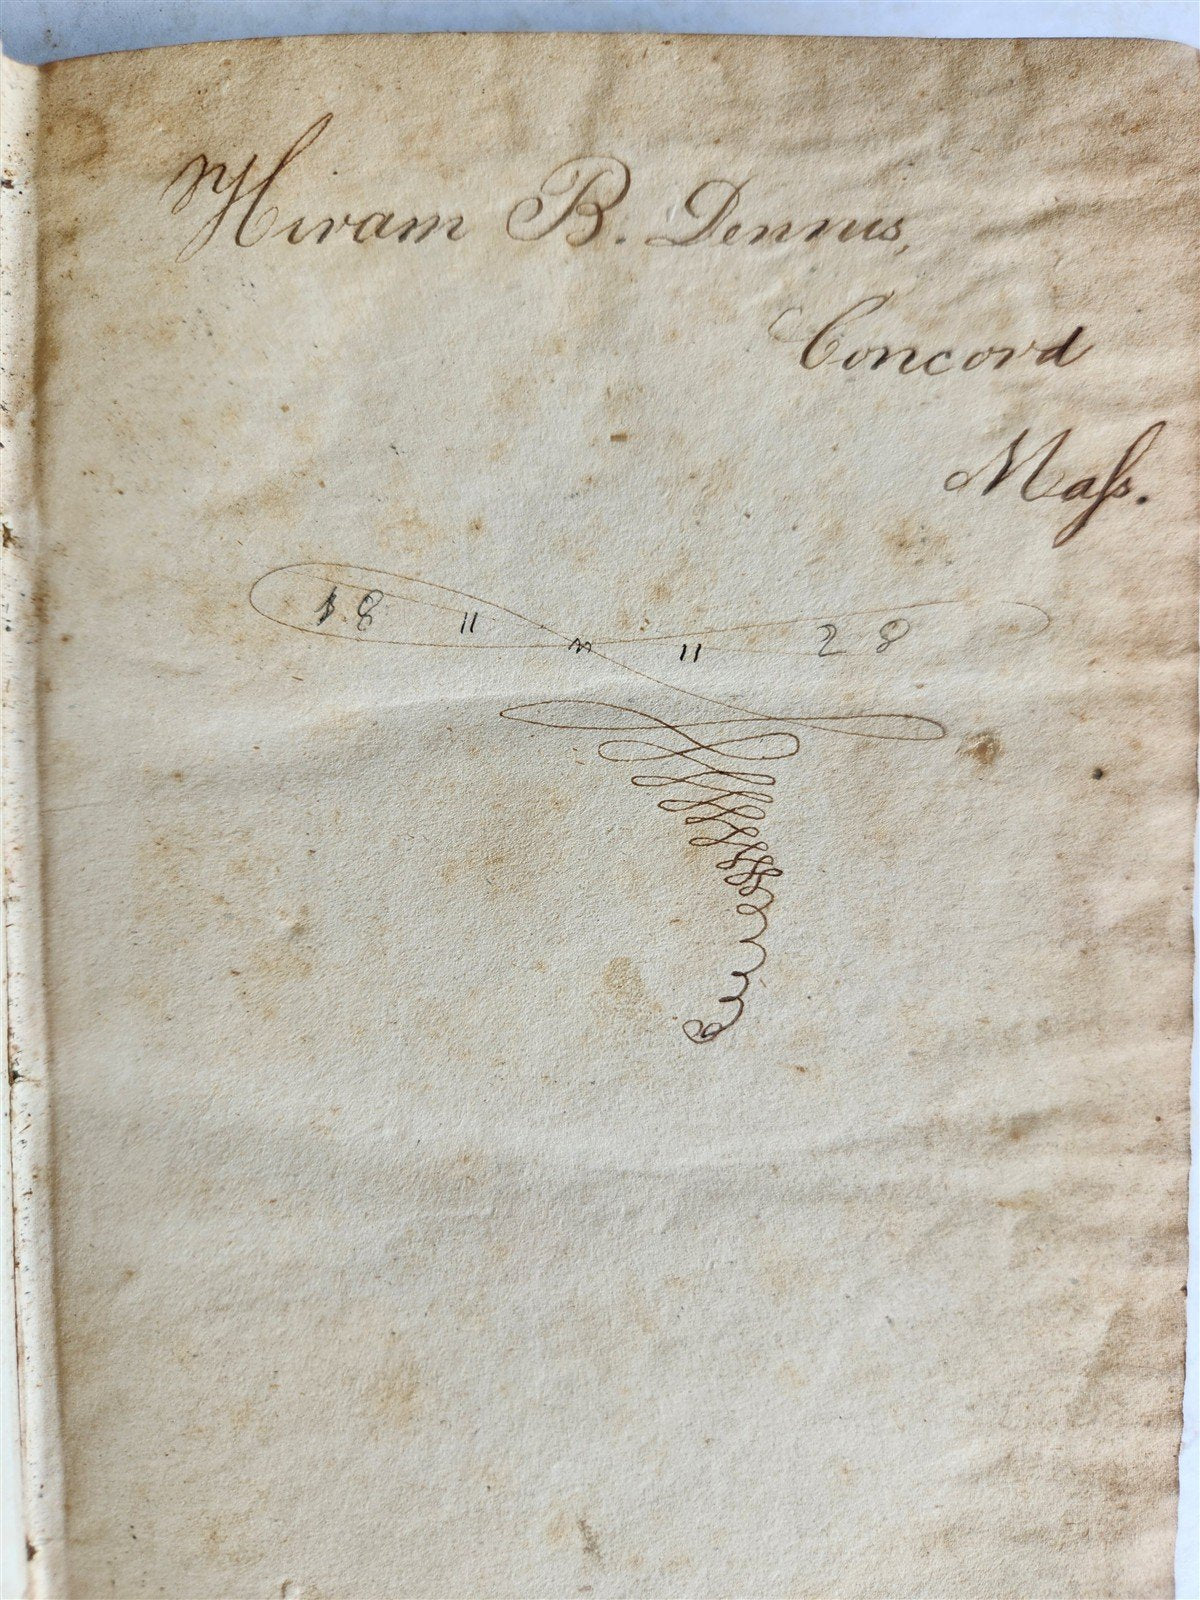 Hiram B. Dennis,
Concord
Maſs.
18 " " 28